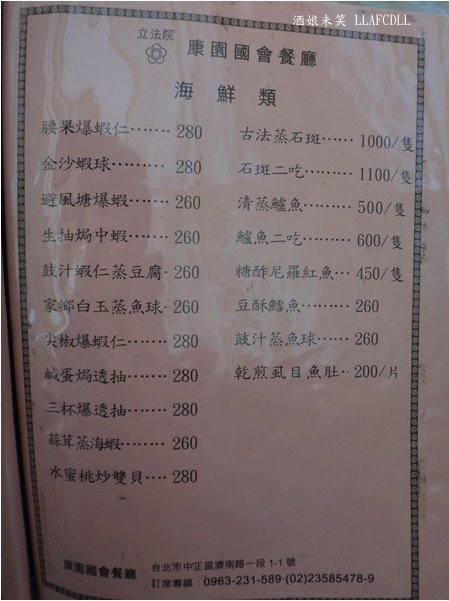 酒娘未笑 LLAFCDLL
立法院
康園國會餐廳
海鮮類
腰果爆蝦仁······ 280
金沙蝦球········· 280
避風塘爆蝦······ 260
生抽焗中蝦······ 260
鼓汁蝦仁蒸豆腐· 260
家鄉白玉蒸魚球· 260
尖椒爆蝦仁······ 280
鹹蛋焗透抽······ 280
三杯爆透抽······ 280
蒜茸蒸海蝦········ 260
水蜜桃炒雙貝···· 280
古法蒸石斑······ 1000/隻
石斑二吃········· 1100/隻
清蒸鱸魚········· 500/隻
鱸魚二吃········· 600/隻
糖酢尼羅紅魚··· 450/隻
豆酥鱈魚········· 260
鼓汁蒸魚球······ 260
乾煎虱目魚肚·· 200/片
康園國會餐廳
台北市中正區濟南路一段 1-1 號
訂席專線：0963-231-589·(02)23585478-9